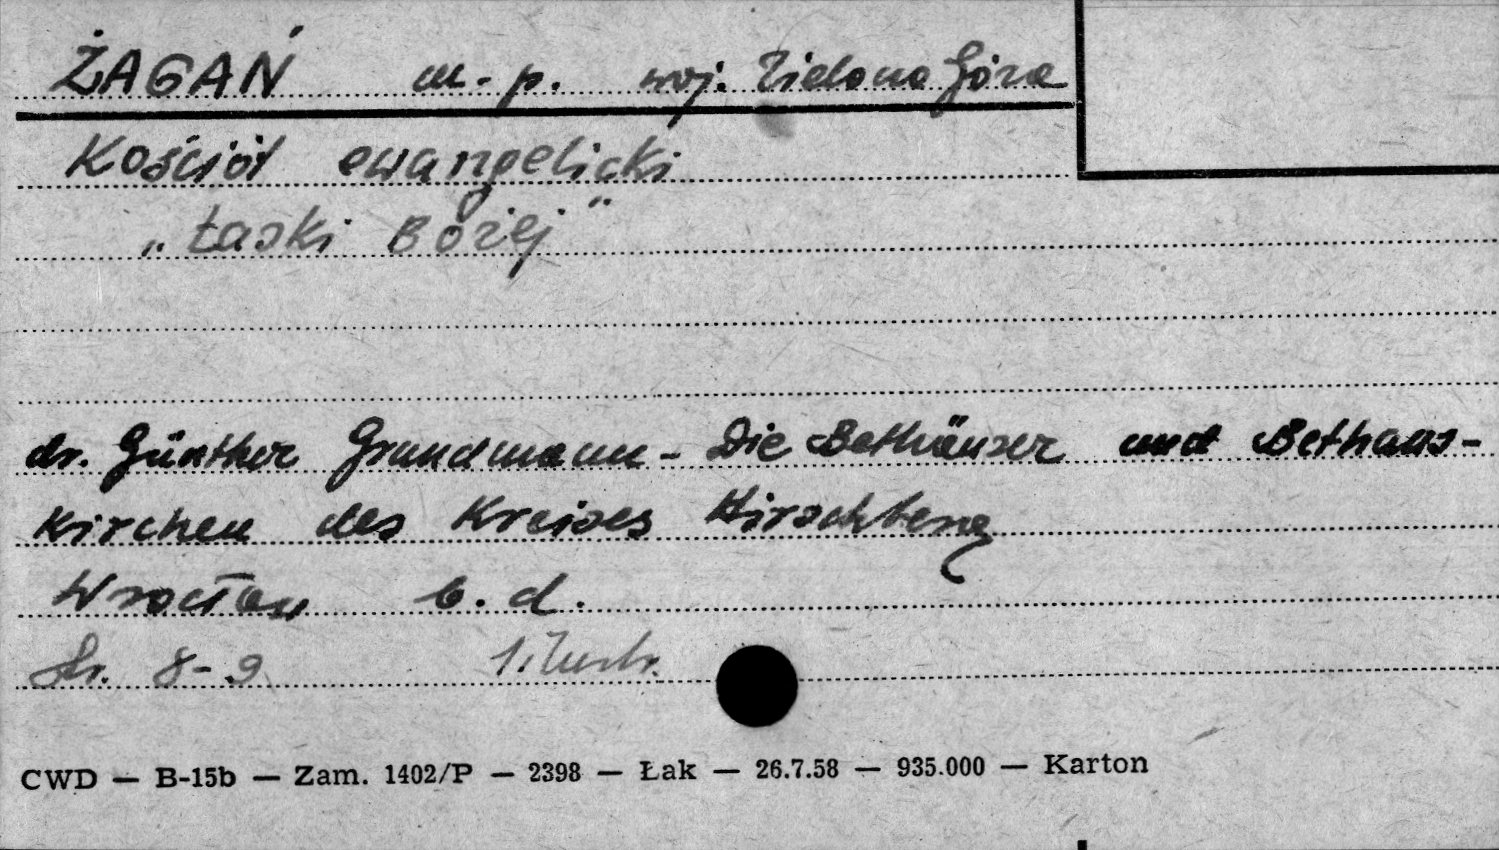 ŻAGAŃ m-p. woj. Zielona Góra
Kościół ewangelicki
„Łaski Bożej"
dr. Günther Grundmann - Die Bethäuser und Bethaus-
kirchen des Kreises Hirschberg
Wrocław b.d.
str. 8-9 1 ilustr.
CWD — B-15b — Zam. 1402/P — 2398 — Łak — 26.7.58 — 935.000 — Karton